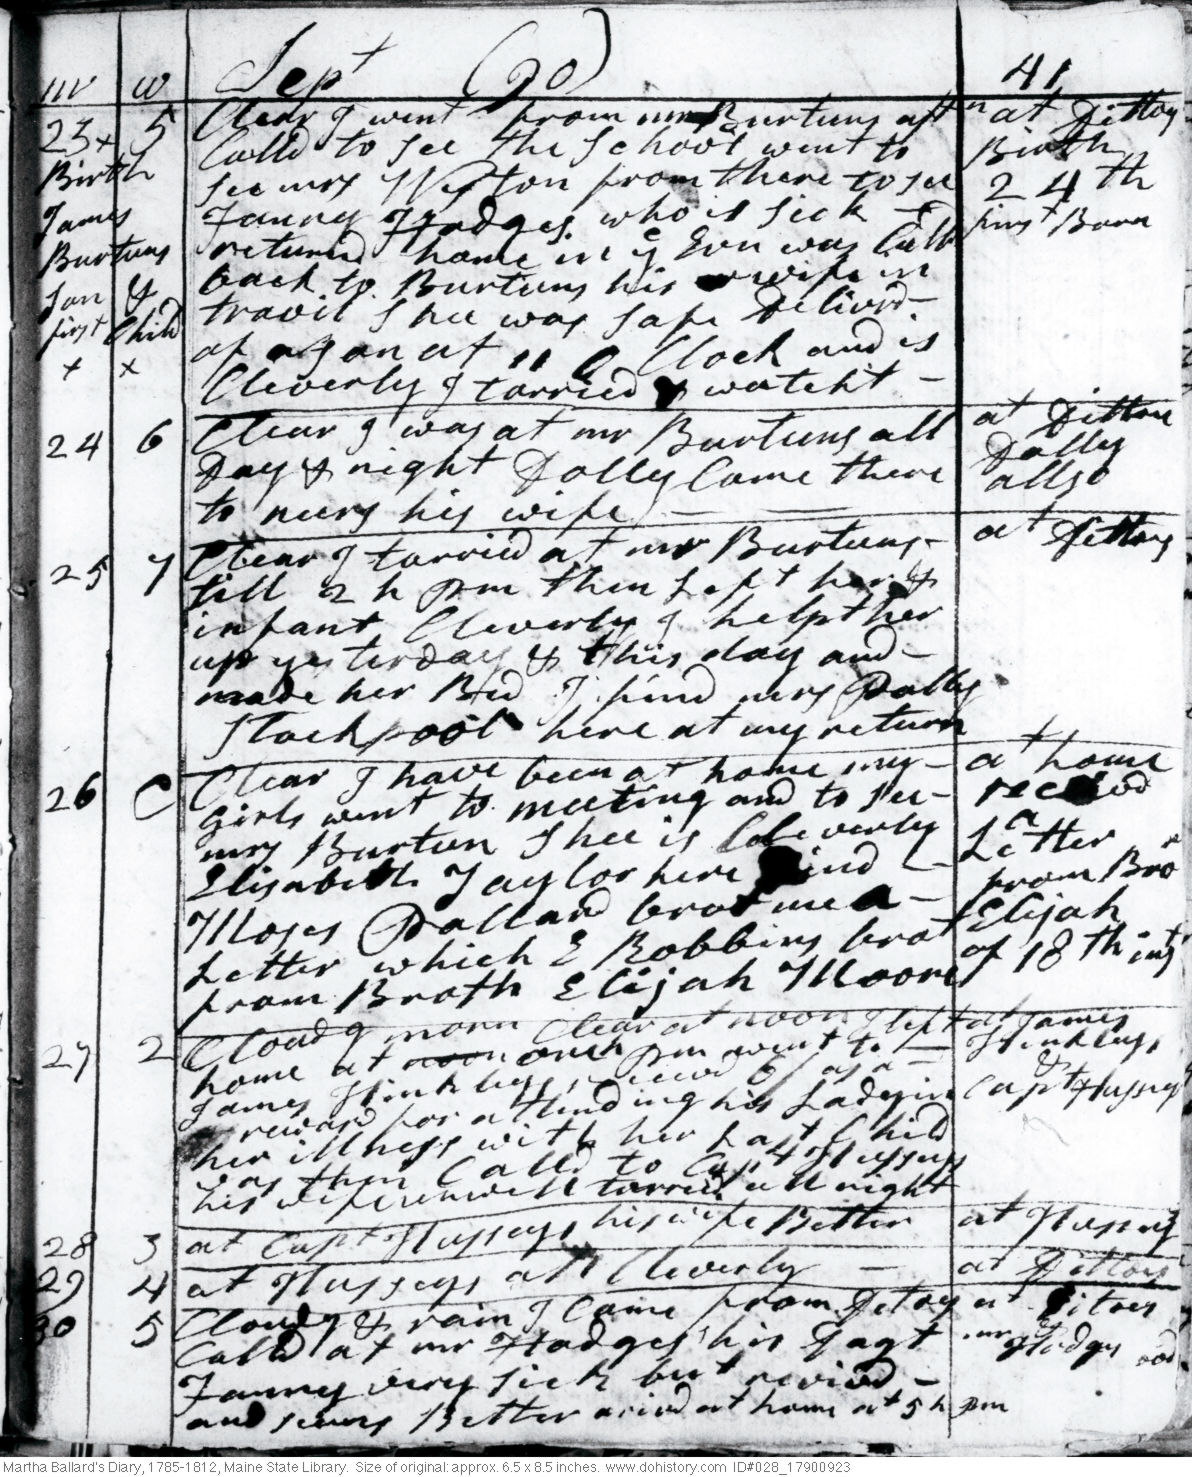 m w Sept (90) 41
23 + 5 Clear I went from mr Burtuns aftn at Dittoy
Birth Calld to see the School went to Birth
see mrs Weston from there to see 24th
James Fanny Hodges who is sick - first Born
Burtuns returnd home in ye Evn was Calld
Son & back to Burtuns his wife in
first Child travil Shee was safe Deliverd -
+ x of a Son at 11 O Clock and is
Cleverly I tarried & watcht -
24 6 Clear I was at mr Burtuns all at Dittoes
Day & night Dolly Came there Dolly
to nurs his wife allso
25 7 Clear I tarried at mr Burtuns - at Dittoy
till 2 h pm then Left her &
infant Cleverly I helpt her
up yesterday & this day and -
made her Bed I find mrs Polly
Stackpool here at my return
26 C Clear I have been at home my - at home
girls went to meeting and to see - receivd
mrs Burtun Shee is Cleverly a Letter
Elisabeth Taylor here - from Bror
Moses Pollard brot me a - Elijah
Letter which E Robbins brot of 18th inst
from Broth Elijah Moore
27 2 Cloudy morn Clear at noon I left at James
home at noon pm went to Hinkleys
James Hinkleys receivd 6/ as a - &
reward for attending his Lady in Capt Husseys
her illness with her Last Child
was then Calld to Capt Husseys
his wife unwell tarried all night
28 3 at Capt Husseys his wife Better at Husseys
29 4 at Husseys all Cleverly - at Dittoes
30 5 Cloudy & rain I Came from Ditoy at Ditoes
Calld at mr Hodges his Dagt & mr Hodges
Fanny very sick but revivd -
and seems Better arivd at home at 5 h pm
Martha Ballard's Diary, 1785-1812, Maine State Library. Size of original: approx. 6.5 x 8.5 inches. www.dohistory.com ID#028_17900923